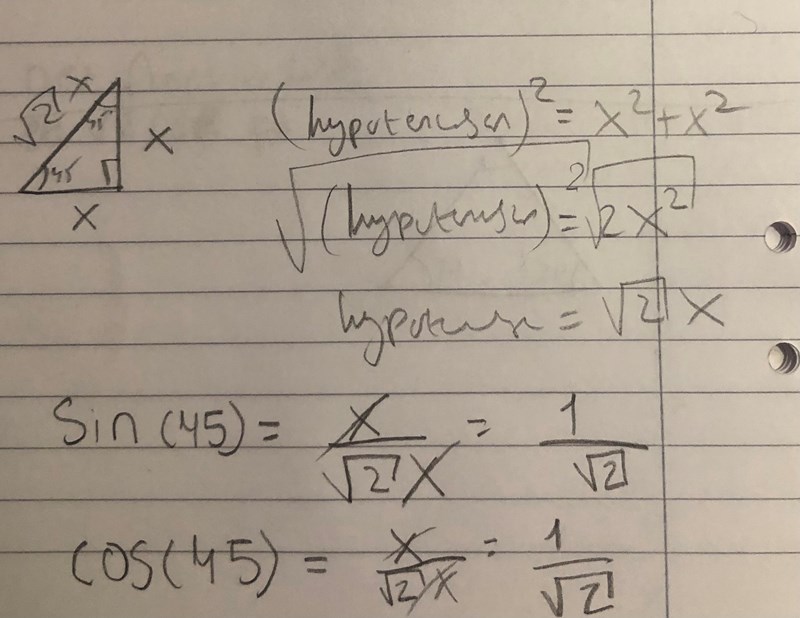 √2 x
45
45
x
x
(hypotenusen)² = x² + x²
√(hypotenusen)² = √2x²
hypotenuse = √2 x
Sin (45) = x/√2 x = 1/√2
cos(45) = x/√2 x = 1/√2